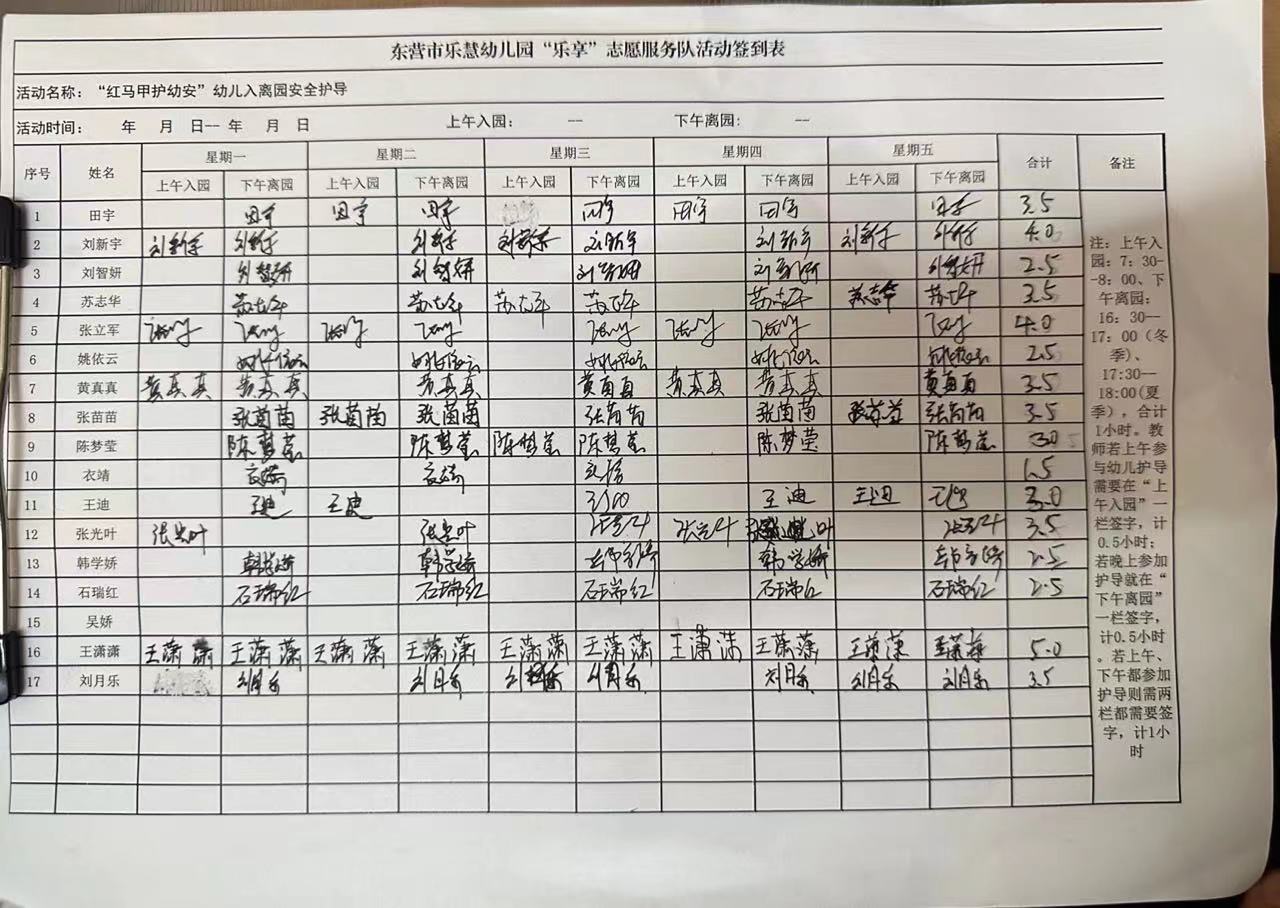 东营市乐慧幼儿园“乐享”志愿服务队活动签到表
活动名称：“红马甲护幼安”幼儿入离园安全护导
活动时间： 年 月 日-- 年 月 日 上午入园： -- 下午离园： --
序号 姓名 星期一 星期二 星期三 星期四 星期五 合计 备注
上午入园 下午离园 上午入园 下午离园 上午入园 下午离园 上午入园 下午离园 上午入园 下午离园
1 田宇 田宇 田宇 田宇 田宇 田宇 田宇 田宇 3.5
2 刘新宇 刘新宇 刘新宇 刘新宇 刘新宇 刘新宇 刘新宇 刘新宇 刘新宇 4.0
3 刘智妍 刘智妍 刘智妍 刘智妍 刘智妍 刘智妍 2.5
4 苏志华 苏志华 苏志华 苏志华 苏志华 苏志华 苏志华 苏志华 3.5
5 张立军 4.0
6 姚依云 姚依云 姚依云 姚依云 姚依云 姚依云 2.5
7 黄真真 黄真真 黄真真 黄真真 黄真真 黄真真 黄真真 黄真真 3.5
8 张苗苗 张苗苗 张苗苗 张苗苗 张苗苗 张苗苗 张苗苗 张苗苗 3.5
9 陈梦莹 陈梦莹 陈梦莹 陈梦莹 陈梦莹 陈梦莹 陈梦莹 3.0
10 衣靖 衣靖 衣靖 衣靖 1.5
11 王迪 王迪 王迪 王迪 王迪 3.0
12 张光叶 张光叶 张光叶 张光叶 张光叶 张光叶 3.5
13 韩学娇 韩学娇 韩学娇 韩学娇 韩学娇 韩学娇 2.5
14 石瑞红 石瑞红 石瑞红 石瑞红 石瑞红 石瑞红 2.5
15 吴娇
16 王潇潇 王潇潇 王潇潇 王潇潇 王潇潇 王潇潇 王潇潇 王潇潇 王潇潇 王潇潇 王潇潇 5.0
17 刘月乐 刘月乐 刘月乐 刘月乐 刘月乐 刘月乐 刘月乐 刘月乐 3.5
注：上午入
园：7：30-
-8：00、下
午离园：
16：30--
17：00（冬
季）、
17:30--
18:00(夏
季），合计
1小时。教
师若上午参
与幼儿护导
需要在“上
午入园”一
栏签字，计
0.5小时；
若晚上参加
护导就在“
下午离园”
一栏签字，
计0.5小时
。若上午、
下午都参加
护导则需两
栏都需要签
字，计1小
时